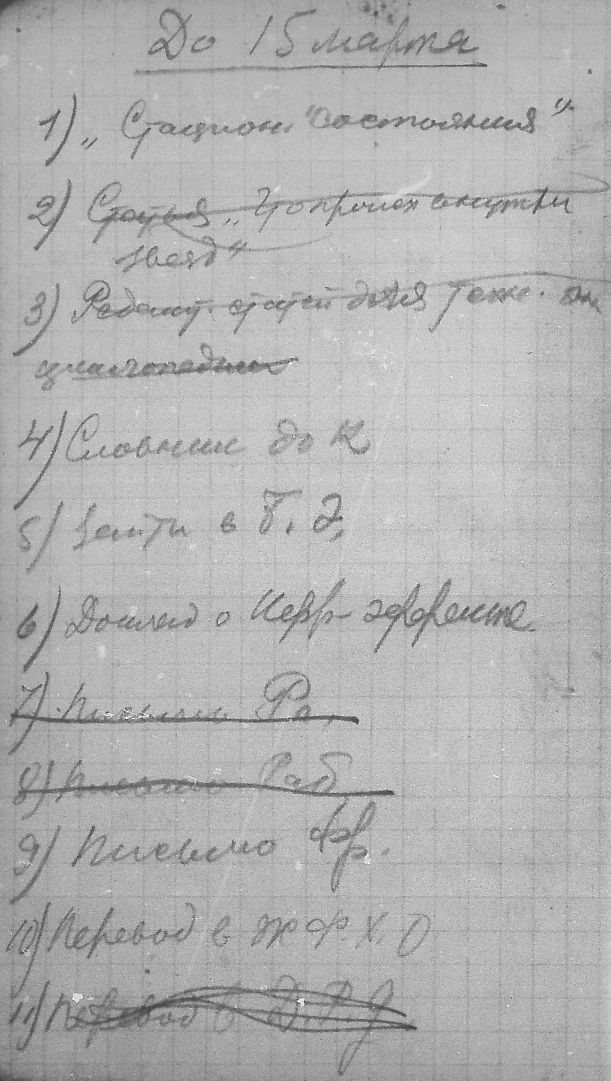 До 15 марта
1) „Стацион. состояния"
2) Статья „Что происх внутри
звезд"
3) Редакт. статей для техн. эн
циклопедии
4) Словник до К
5) Зайти в Т. Э.
6) Доклад о Керр-эффекте
7) Письмо Ро.
8) Письмо Раб
9) Письмо Фр.
10) Перевод в ЖФ.Х.О
11) Перевод в